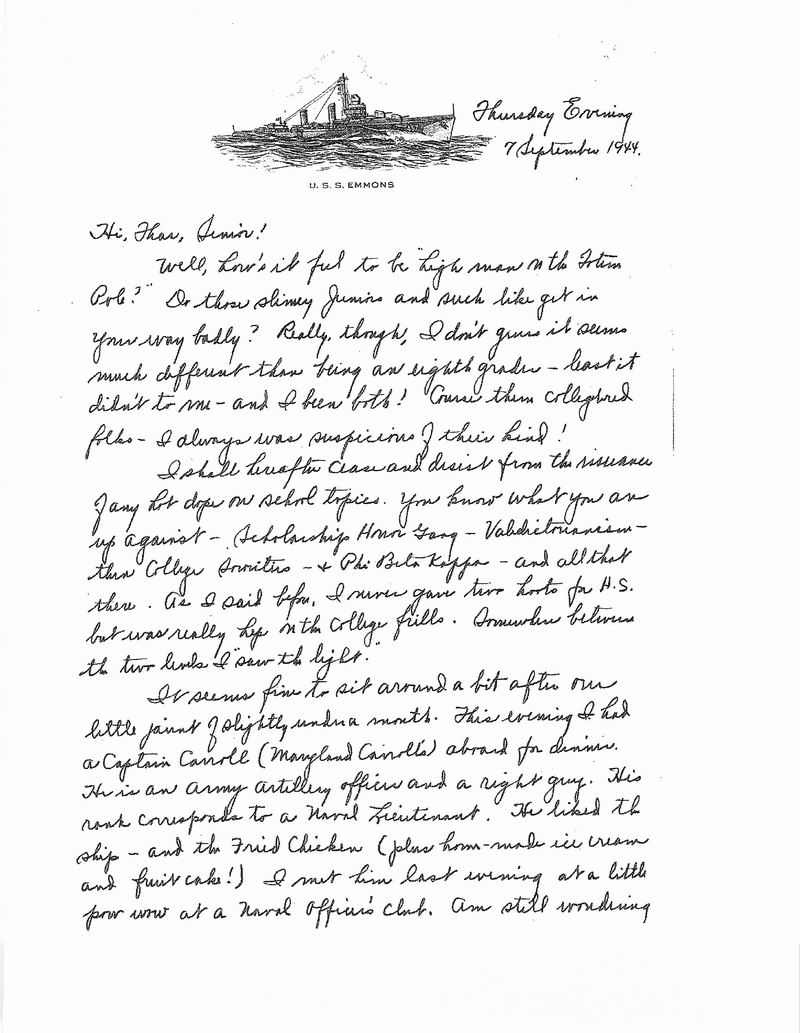 Thursday Evening
7 September 1944.
U. S. S. EMMONS
Hi, Thar, Senior!
Well, how's it feel to be "high man on the Totem
Pole?" Do those slimey Juniors and such like get in
your way badly? Really, though, I don't guess it seems
much different than being an eighth grader - least it
didn't to me - and I been both! Course them collegebred
folks - I always was suspicious of their kind!
I shall hereafter cease and desist from the issuance
of any hot dope on school topics. You know what you are
up against - Scholarships Honor Gang - Valedictorianism -
then College Sororities - & Phi Beta Kappa - and all that
there. As I said before, I never gave two hoots for H.S.
but was really hep on the College frills. Somewhere between
the two levels I "saw the light."
It seems fine to sit around a bit after our
little jaunt of slightly under a month. This evening I had
a Captain Carroll (Maryland Carrolls) aboard for dinner.
He is an Army Artillery officer and a right guy. His
rank corresponds to a Naval Lieutenant. He liked the
ship - and the Fried Chicken (plus home-made ice cream
and fruit cake!) I met him last evening at a little
pow wow at a Naval Officer's club. Am still wondering